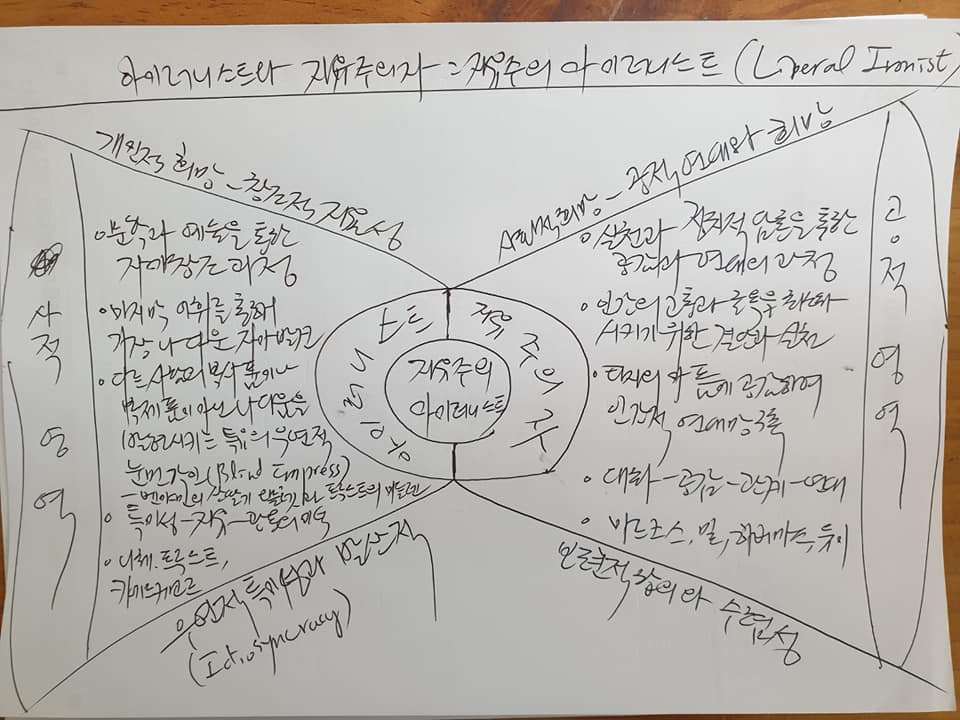 아이러니스트와 자유주의자 = 자유주의 아이러니스트 (Liberal Ironist)
개인적 희망 - 창조적 자율성
사회적 희망 - 공적 연대와 희망
사적 영역
문학과 예술을 통한
자아창조 과정
마지막 어휘를 통해
가장 나다운 자아 발견
다른 사람의 복사품이나
복제품이 아닌 나다움을
발현시키는 특유의 우연적
눈먼 각인 (Blind Impress)
특이성 - 자유 - 관용의 미덕
니체, 프루스트,
우연적 특이성과 발산적
(Idiosyncracy)
아이러니스트
자유주의자
자유주의
아이러니스트
공적 영역
실천과 정치적 담론을 통한
공감과 연대의 과정
인간의 고통과 굴욕을 최소화
시키기 위한 결연한 실천
타자의 아픔에 공감하여
인간적 연대망 구축
대화 - 공감 - 관계 - 연대
마르크스, 밀, 하버마스, 듀이
합의와 수렴성